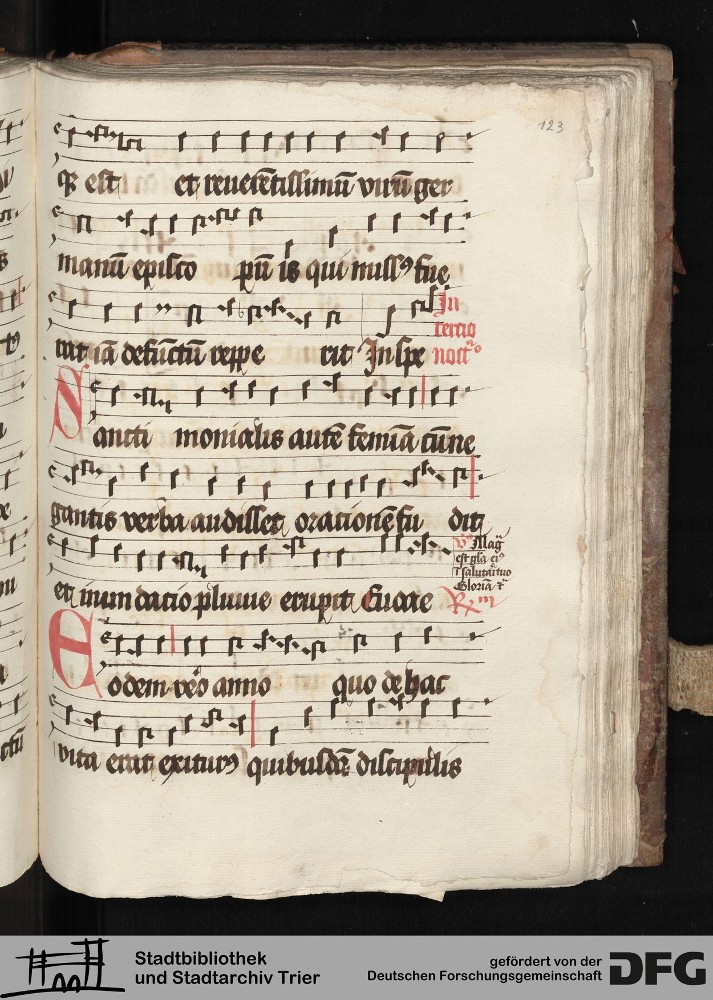 123
q̄ est et reuerētissimū virū ger
manū episco pū is qui miss⁹ fue
rat iā defūctū reppe rit In spe
In
tercio
noct̄º
Sancti monialis autē femīa cū ne
gantis verba audisset oracionē fu dit
et inundacio pluuie erupit Euoae
℣ Mag̅
est gl̄a ei⁹
ī salutari tuo
Gloria
Eodem vero anno quo de hac
vita erat exitur⁹ quibusdā discipulis
Stadtbibliothek
und Stadtarchiv Trier
gefördert von der
Deutschen Forschungsgemeinschaft
DFG